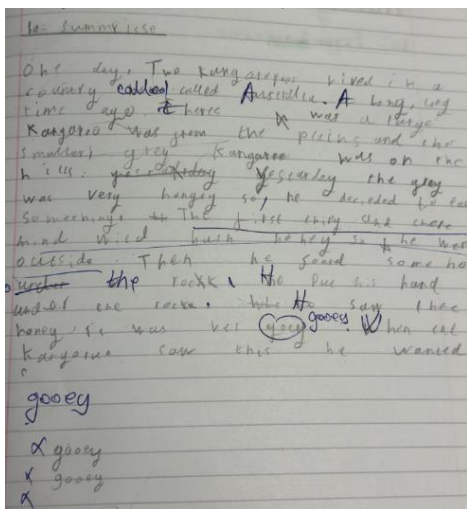 to summrise
One day, Two kangaroos lived in a
country called called Australia. A long, long
time ago. there was a large
Kangaroo was from the plains and the
smaller grey kangaroo was on the
hills. yesterday Yesterday the grey
was very hungry so, he decided to
something. The first thing and
mind was honey so he
outside. Then he found some
under the rock. He Put his hand
under the rock. He saw
honey, it was gooey gooey. When
kangaroo saw this he wanted
gooey
gooey
gooey